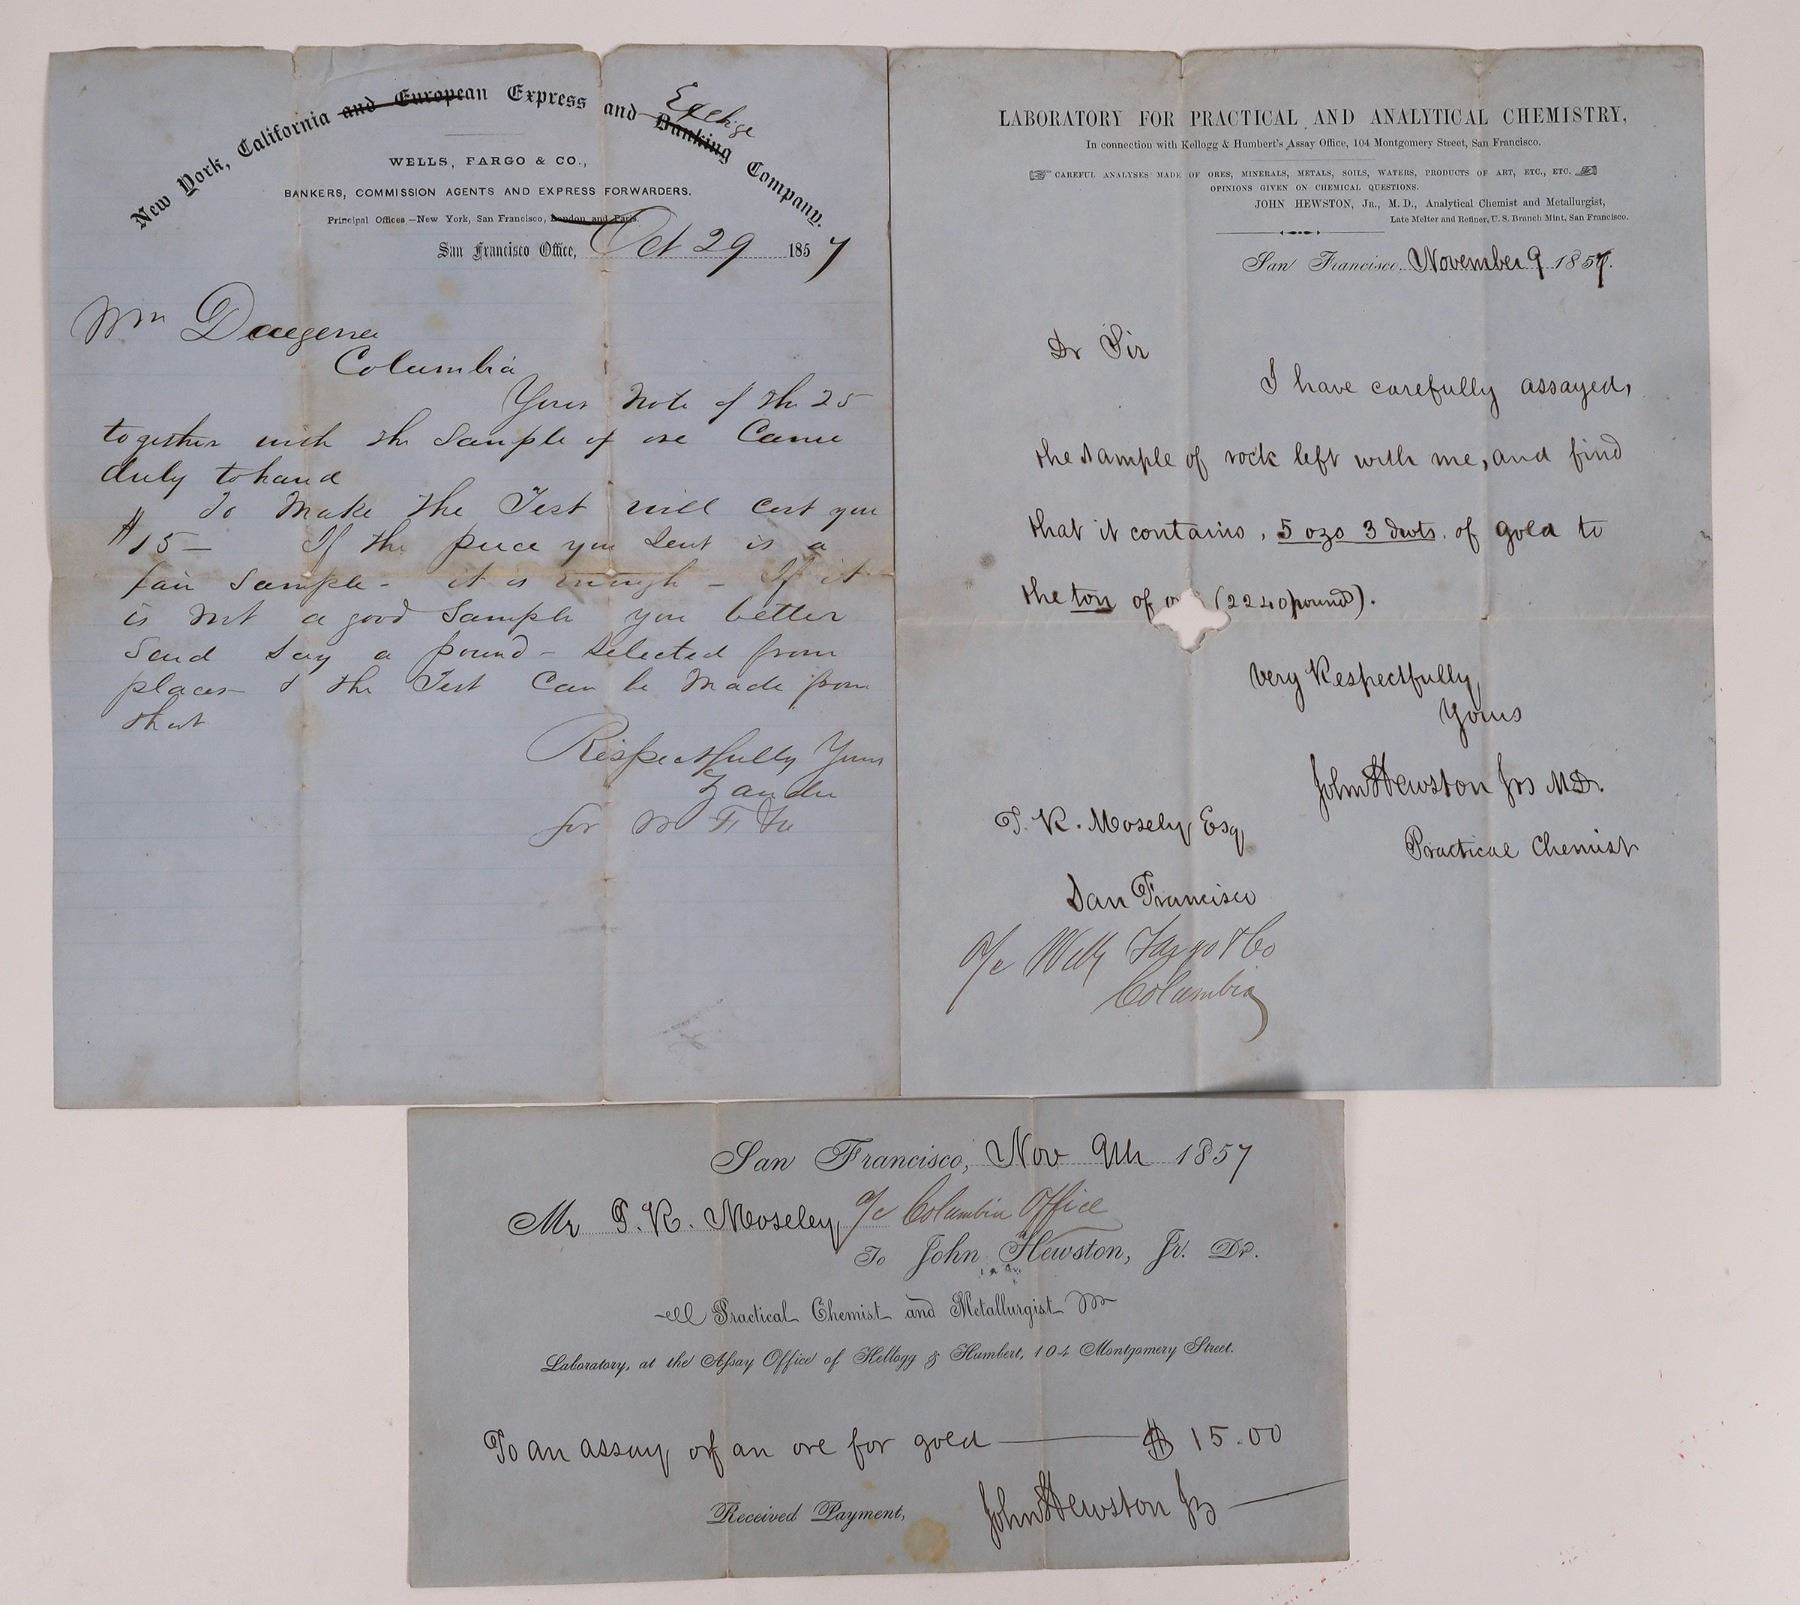 New York, California and European Express and Banking Company.
Exchge
WELLS, FARGO & CO.,
BANKERS, COMMISSION AGENTS AND EXPRESS FORWARDERS.
Principal Offices—New York, San Francisco, London and Paris.
San Francisco Office, Oct 29 1857
Wm Daegener
Columbia
Your Note of the 25
together with the Sample of ore Came
duly to hand
To Make the Test will Cost you
$15— If the piece you Sent is a
fair Sample - it is enough - If it
is not a good Sample you better
Send Say a pound - Selected from
places & the Test Can be Made from
that
Respectfully Yours
for W F &Co
LABORATORY FOR PRACTICAL AND ANALYTICAL CHEMISTRY,
In connection with Kellogg & Humbert's Assay Office, 104 Montgomery Street, San Francisco.
CAREFUL ANALYSES MADE OF ORES, MINERALS, METALS, SOILS, WATERS, PRODUCTS OF ART, ETC., ETC.
OPINIONS GIVEN ON CHEMICAL QUESTIONS.
JOHN HEWSTON, JR., M. D., Analytical Chemist and Metallurgist,
Late Melter and Refiner, U. S. Branch Mint, San Francisco.
San Francisco, November 9 1857.
Dr Sir
I have carefully assayed,
the sample of rock left with me, and find
that it contains, 5 ozs 3 dwts. of gold to
the ton of (2240 pounds).
Very Respectfully,
Yours
John Hewston Jr M.D.
Practical Chemist
T. R. Mosely Esq
San Francisco
a/c Wells Fargo & Co
Columbia
San Francisco, Nov 9th 1857
Mr T. R. Moseley, a/c Columbia Office
To John Hewston, Jr. Dr.
Practical Chemist and Metallurgist
Laboratory, at the Assay Office of Kellogg & Humbert, 104 Montgomery Street.
To an assay of an ore for gold — $ 15.00
Received Payment, John Hewston Jr